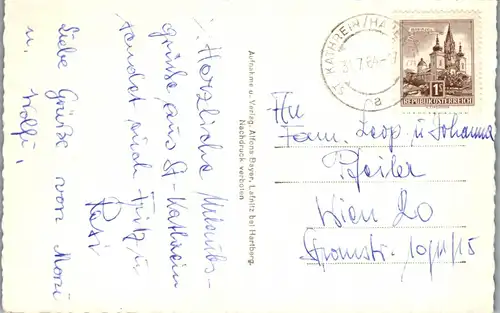 Herzliche Urlaubs-
grüße aus St. Kathrein
sendet Euch Fritz u.
Resi
Liebe Grüße von Mozi
u. Wolfi.
Aufnahme u. Verlag: Alfons Bayer, Lafnitz bei Hartberg.
Nachdruck verboten
ST. KATHREIN/HA
31.7.64-7
a
MARIAZELL
1S
REPUBLIK ÖSTERREICH
An
Fam. Leop. u Johanna
Pfeiler
Wien 20
Stromstr.